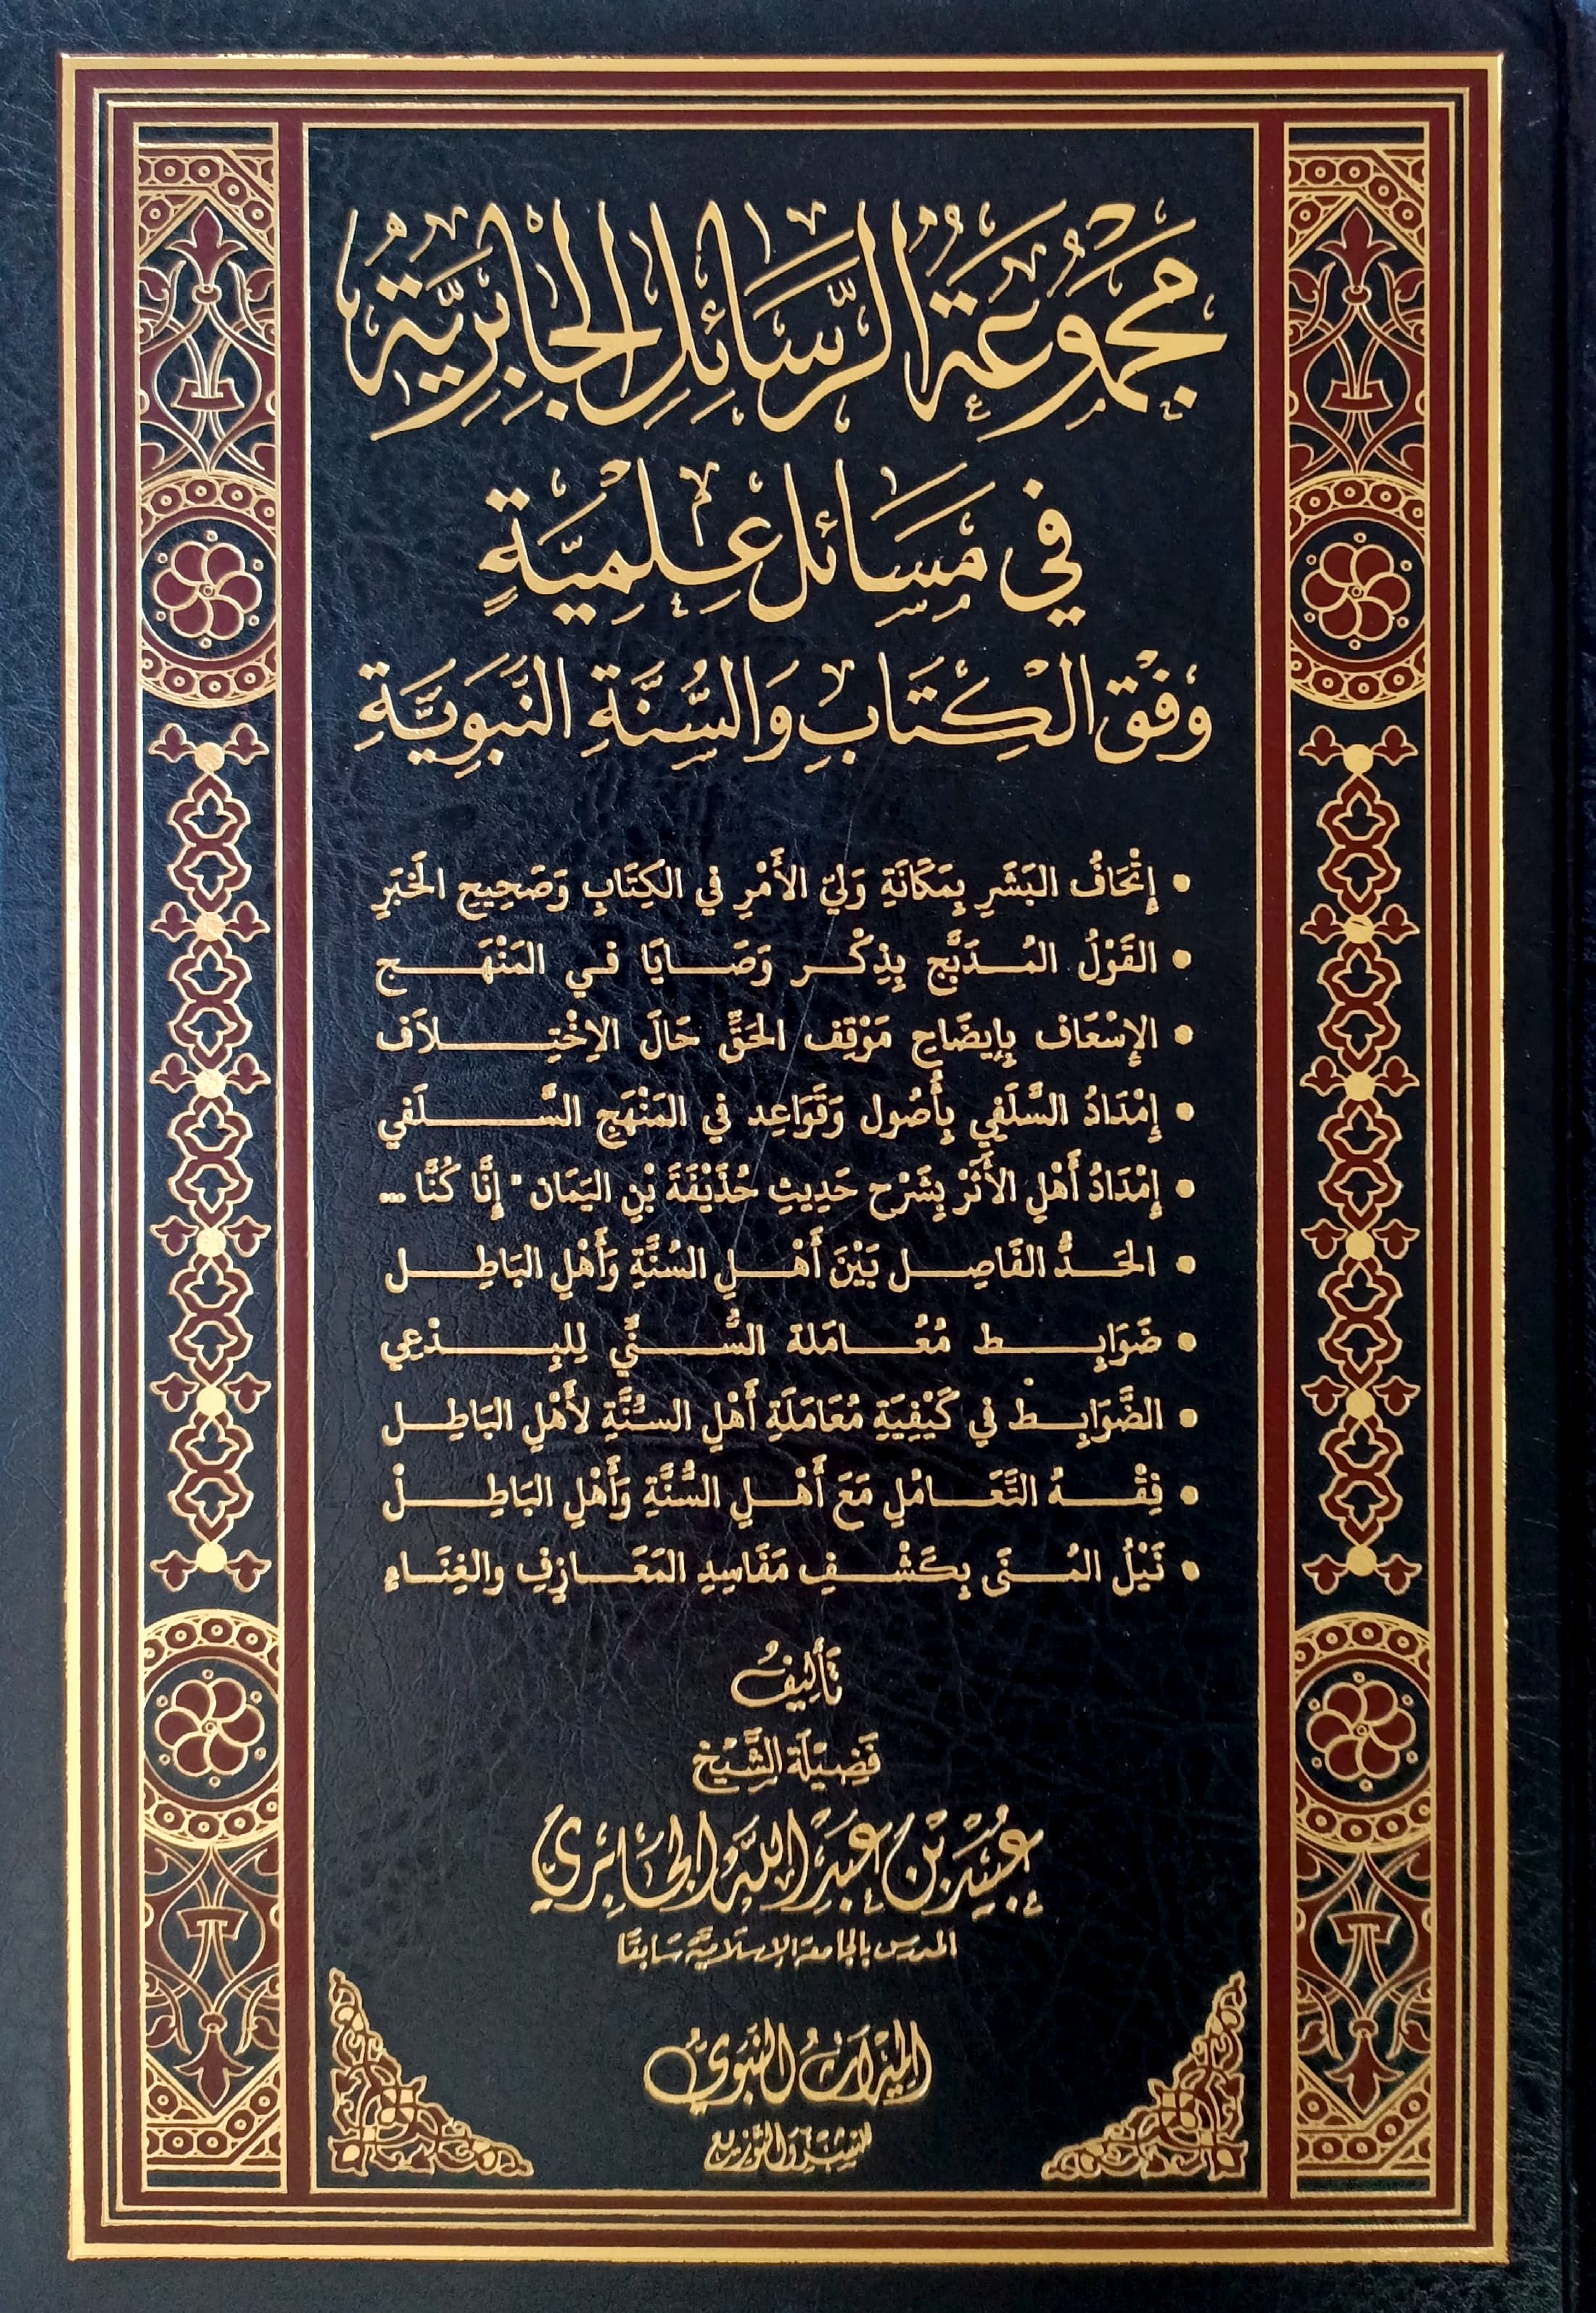 مَجْمُوعَةُ الرَّسَائِلِ الجَابِرِيَّةِ
فِي مَسَائِل عِلْمِيَّةٍ
وَفْقَ الْكِتَابِ وَالسُّنَّةِ النَّبَوِيَّةِ
• إِتْحَافُ البَشَرِ بِمَكَانَةِ وَلِيِّ الأَمْرِ فِي الكِتَابِ وَصَحِيحِ الخَبَرِ
• القَوْلُ المُدَبَّج بِذِكْر وَصَايَا فِي المَنْهَج
• الإِسْعَاف بِإِيضَاحِ مَوْقِف الحَقِّ حَالَ الاِخْتِلَاف
• إِمْدَادُ السَّلَفِي بِأُصُول وَقَوَاعِد فِي المَنْهَجِ السَّلَفي
• إِمْدَادُ أَهْلِ الأَثَرْ بِشَرْح حَدِيثِ حُذَيْفَةَ بْنِ اليَمَان " إِنَّا كُنَّا ...
• الحَدُّ الفَاصِل بَيْنَ أَهْلِ السُنَّةِ وَأَهْلِ البَاطِل
• ضَوَابِط مُعُامَلة السُّنِّي لِلبِدْعِي
• الضَّوَابِط فِي كَيْفِيَةِ مُعَامَلَةِ أَهْلِ السُّنَّةِ لأَهْلِ البَاطِل
• فِقْهُ التَّعَامُلِ مَعَ أَهْلِ السُّنَّةِ وَأَهْلِ البَاطِلْ
• نَيْلُ المُنَى بِكَشْفِ مَفَاسِدِ المَعَازِفِ والغِنَاءِ
تَأْلِيفُ
فَضِيْلَةِ الشَّيْخ
عُبَيْدِ بْنِ عَبْدِ اللَّهِ الجَابِرِي
المدرس بالجامعة الإسلامية سَابقًا
المِيْرَاثُ النَّبَوِيُّ
للنشر والتوزيع